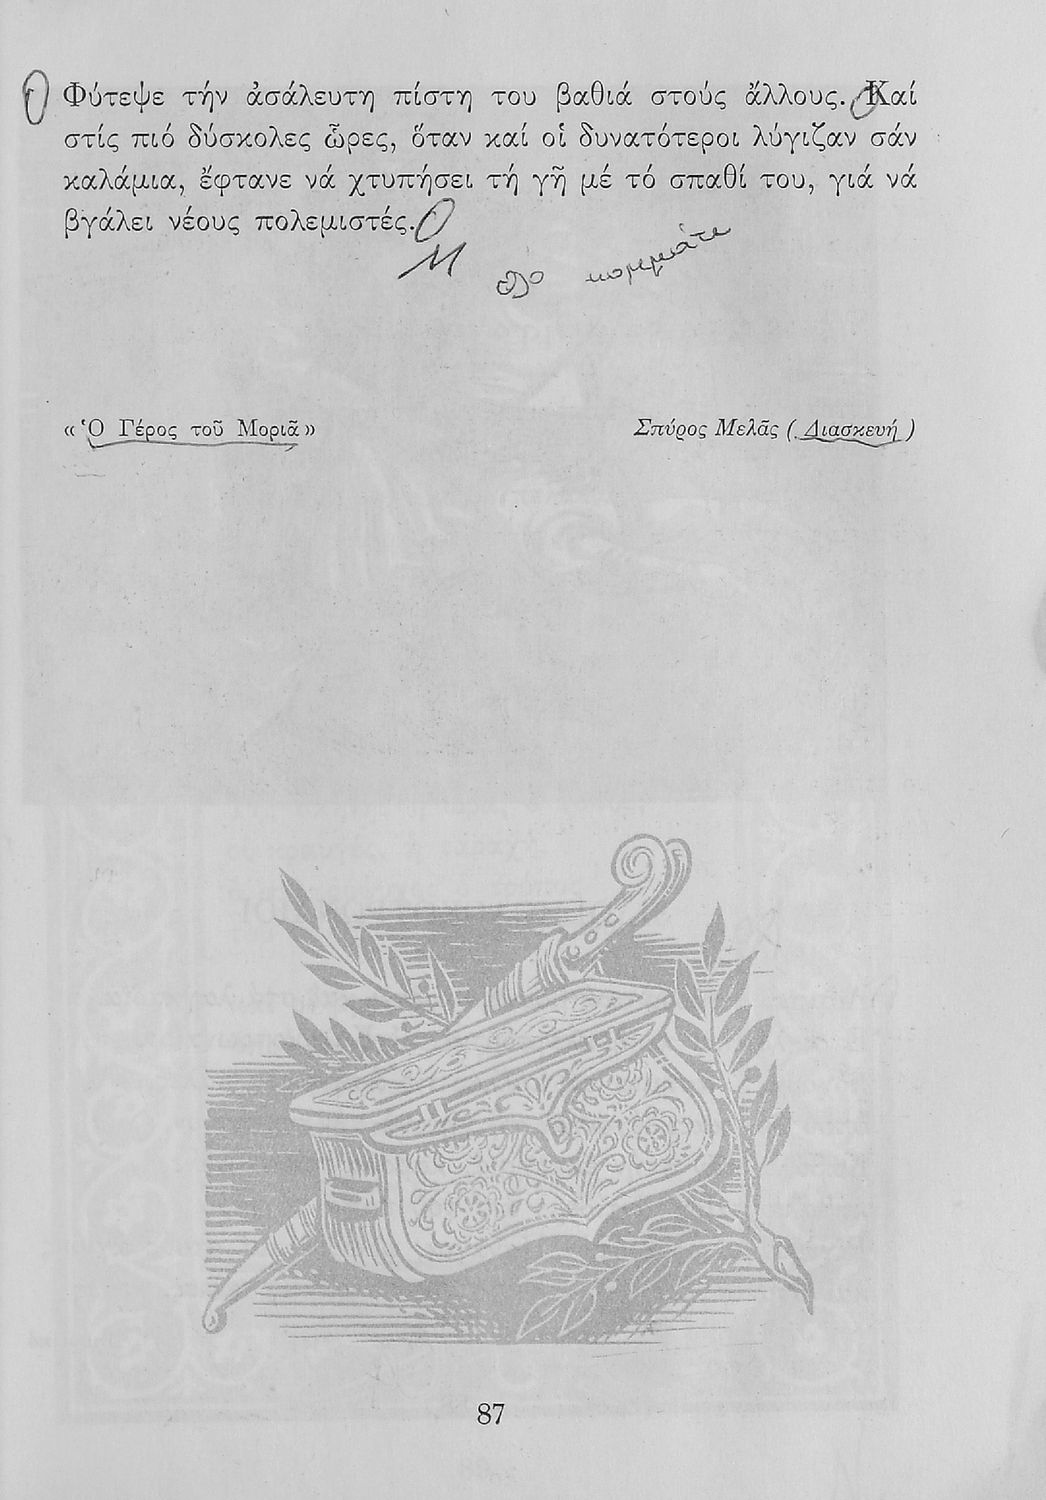 Φύτεψε τήν ἀσάλευτη πίστη του βαθιά στούς ἄλλους. Καί
στίς πιό δύσκολες ὧρες, ὅταν καί οἱ δυνατότεροι λύγιζαν σάν
καλάμια, ἔφτανε νά χτυπήσει τή γῆ μέ τό σπαθί του, γιά νά
βγάλει νέους πολεμιστές.
«Ὁ Γέρος τοῦ Μοριᾶ»
Σπύρος Μελᾶς (Διασκευή)
87